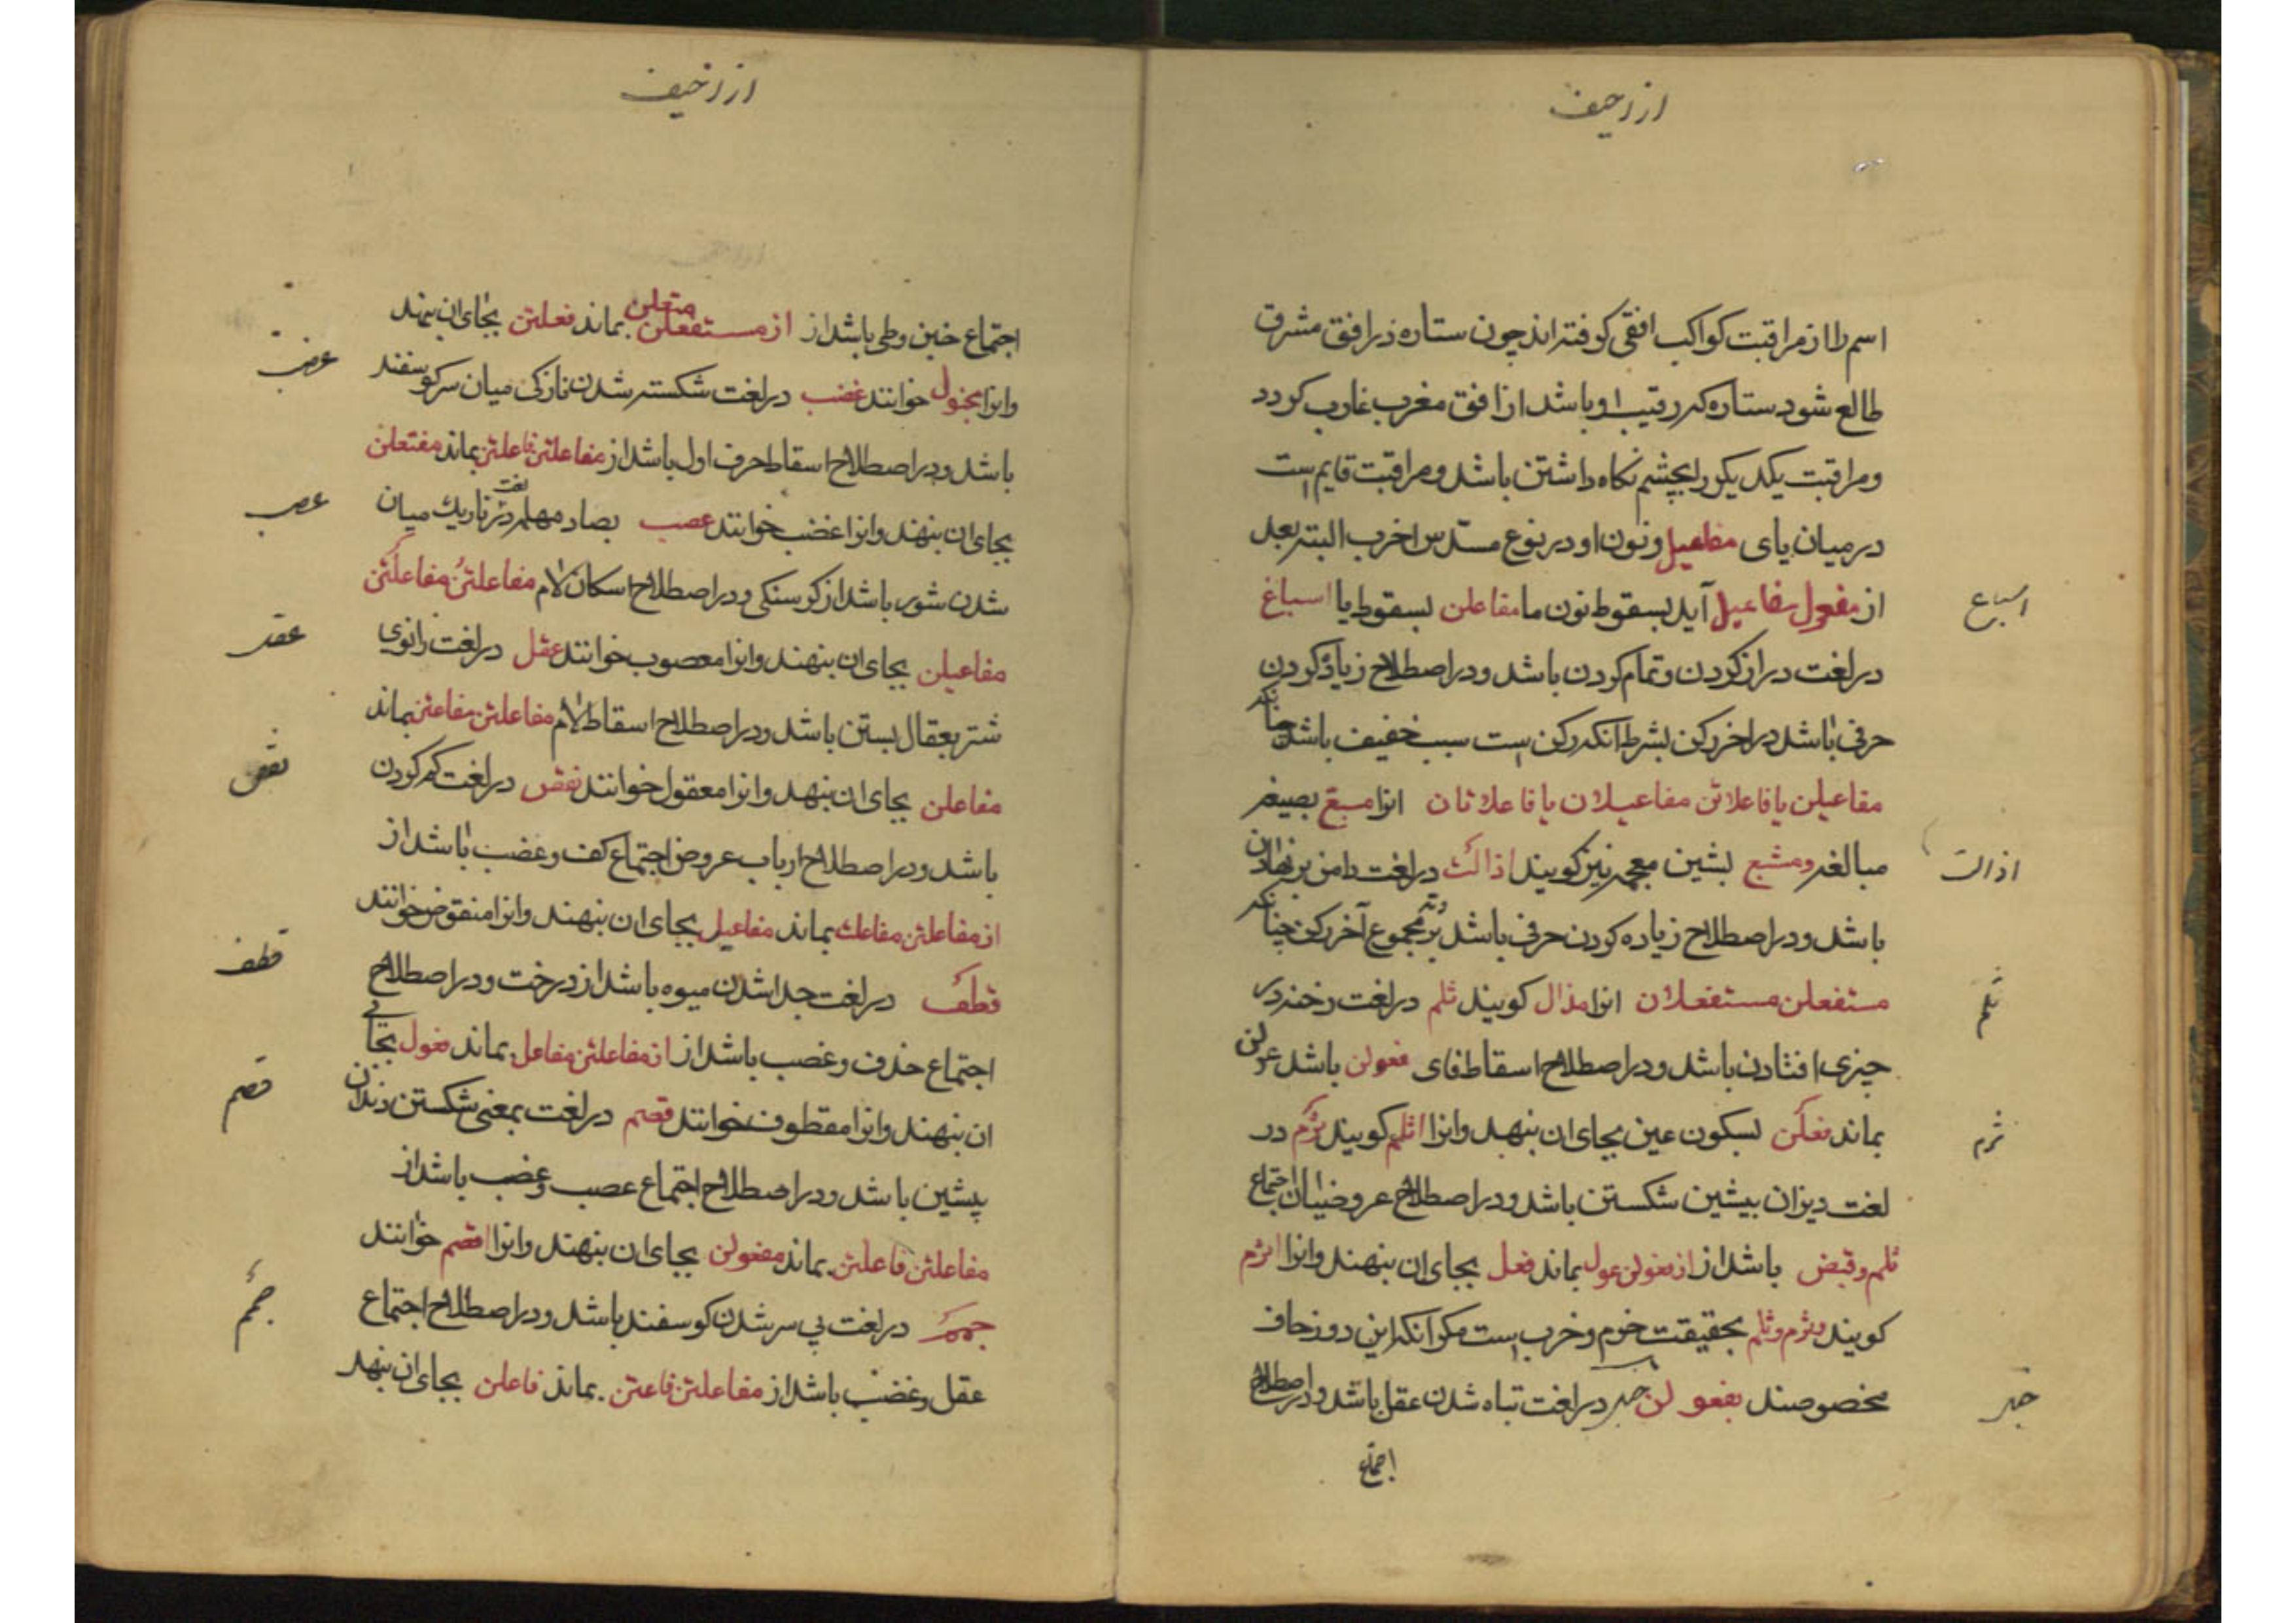 ازاحیف
اسم را از مراقبت کواکب افقی کرفته اند چون ستاره در افق مشرق
طالع شود ستاره که رقیب او باشد از افق مغرب غارب کردد
و مراقبت یکدیکر را بچشم نکاه داشتن باشد و مراقبت قایم است
در میان یای مفاعیل و نون او در نوع مسدس اخرب البته بعد
از مفعول مفاعیل آید بسقوط نون ما مفاعلن بسقوط یا اسباغ
اسباغ
در لغت دراز کردن و تمام کردن باشد و در اصطلاح زیاد کردن
حرفی باشد در اخر رکن بشرط انکه رکن است سبب خفیف باشد چنانکه
مفاعیلن یا فاعلاتن مفاعیلان یا فاعلاتان انرا مسبغ بصیغه
مبالغه و مشبع بشین معجمه نیز کویند اذالت در لغت دامن بر نهادن
اذالت
باشد و در اصطلاح زیاده کردن حرفی باشد بر وتد مجموع آخر رکن چنانکه
مستفعلن مستفعلان انرا مذال کویند ثلم در لغت رخنه در
ثلم
چیزی افتادن باشد و در اصطلاح اسقاط فای فعولن باشد عولن
بماند فعلن بسکون عین بجای ان بنهد وانرا اثلم کویند ثرم در
ثرم
لغت دیزان بیشین شکستن باشد و در اصطلاح عروضیان اجتماع
ثلم و قبض باشد از از فعولن عول بماند فعل بجای ان بنهند وانرا اثرم
کویند و ثرم و ثلم بحقیقت خرم و خرب است مکر انکه این دو زحاف
مخصوصند بفعولن خبر در لغت تباه شدن عقل باشد و در اصطلاح
خبر
اجتماع
ازاخیف
اجتماع خبن و طی باشد از از مستفعلن متعلن بماند فعلتن بجای ان بنهند
وانرا مخبول خوانند غضب در لغت شکسته شدن نازکی میان سر کوسفند
عضب
باشد و در اصطلاح اسقاط حرف اول باشد از مفاعلتن فاعلتن بماند مفتعلن
بجای ان بنهند وانرا غضب خوانند عصب بصاد مهمله در لغت باریک میان
عصب
شدن شور باشد از کرسنکی و در اصطلاح اسکان لام مفاعلتن مفاعلتن
مفاعیلن بجای ان بنهند وانرا معصوب خوانند عقل در لغت زانوی
عقد
شتر بعقال بستن باشد و در اصطلاح اسقاط لام مفاعلتن مفاعتن بماند
مفاعلن بجای ان بنهد وانرا معقول خوانند نقض در لغت کم کردن
نقض
باشد و در اصطلاح ارباب عروض اجتماع کف و غضب باشد از
از مفاعلتن مفاعلت بماند مفاعیل بجای ان بنهند وانرا منقوض خوانند
قطف در لغت جدا شدن میوه باشد از درخت و در اصطلاح
قطف
اجتماع حذف و غضب باشد از از مفاعلتن مفاعل بماند فعول بجای
ان بنهند وانرا مقطوف خوانند قصم در لغت بمعنی شکستن دندان
قصم
پیشین باشد و در اصطلاح اجتماع عصب و غضب باشد از
مفاعلتن فاعلتن بماند مفعولن بجای ان بنهند وانرا اقصم خوانند
جمم در لغت بی سر شدن کوسفند باشد و در اصطلاح اجتماع
جمم
عقل و غضب باشد از مفاعلتن فاعتن بماند فاعلن بجای ان بنهد